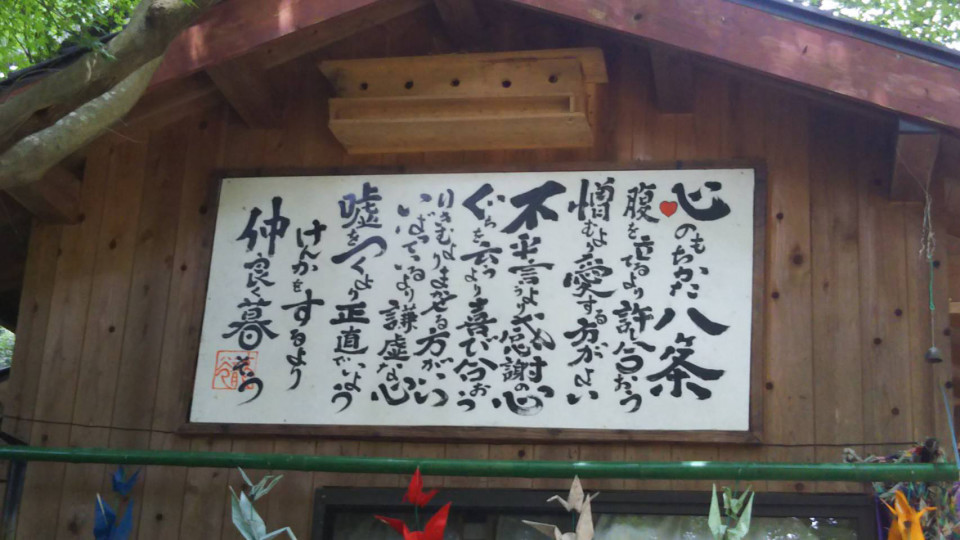 心のもちかた八ヶ条
腹を立てるより許し合おう
憎むより愛する方がよい
不平言うより感謝の心
ぐちを云うより喜び合おう
りきむよりまかせる方がいい
いばっているより謙虚な心
嘘をつくより正直でいよう
けんかをするより
仲良く暮そう